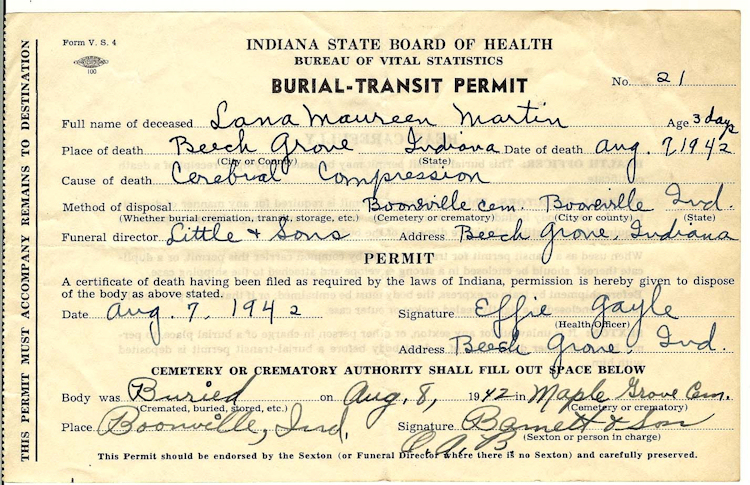 Form V. S. 4
100
INDIANA STATE BOARD OF HEALTH
BUREAU OF VITAL STATISTICS
BURIAL-TRANSIT PERMIT
No. 21
THIS PERMIT MUST ACCOMPANY REMAINS TO DESTINATION
Full name of deceased Lana Maureen Martin Age 3 days
Place of death Beech Grove Indiana Date of death Aug. 7, 1942
(City or County) (State)
Cause of death Cerebrial Compression
Method of disposal Booneville Cem. Booneville Ind.
(Whether burial cremation, transit, storage, etc.) (Cemetery or crematory) (City or county) (State)
Funeral director Little & Sons Address Beech Grove, Indiana
PERMIT
A certificate of death having been filed as required by the laws of Indiana, permission is hereby given to dispose
of the body as above stated.
Date Aug. 7, 1942 Signature Effie Gayle
(Health Officer)
Address Beech Grove, Ind.
CEMETERY OR CREMATORY AUTHORITY SHALL FILL OUT SPACE BELOW
Body was Buried on Aug. 8, 1942 in Maple Grove Cem.
(Cremated, buried, stored, etc.) (Cemetery or crematory)
Place Boonville, Ind. Signature Barnett & Son
(Sexton or person in charge)
O.A.B
This Permit should be endorsed by the Sexton (or Funeral Director where there is no Sexton) and carefully preserved.